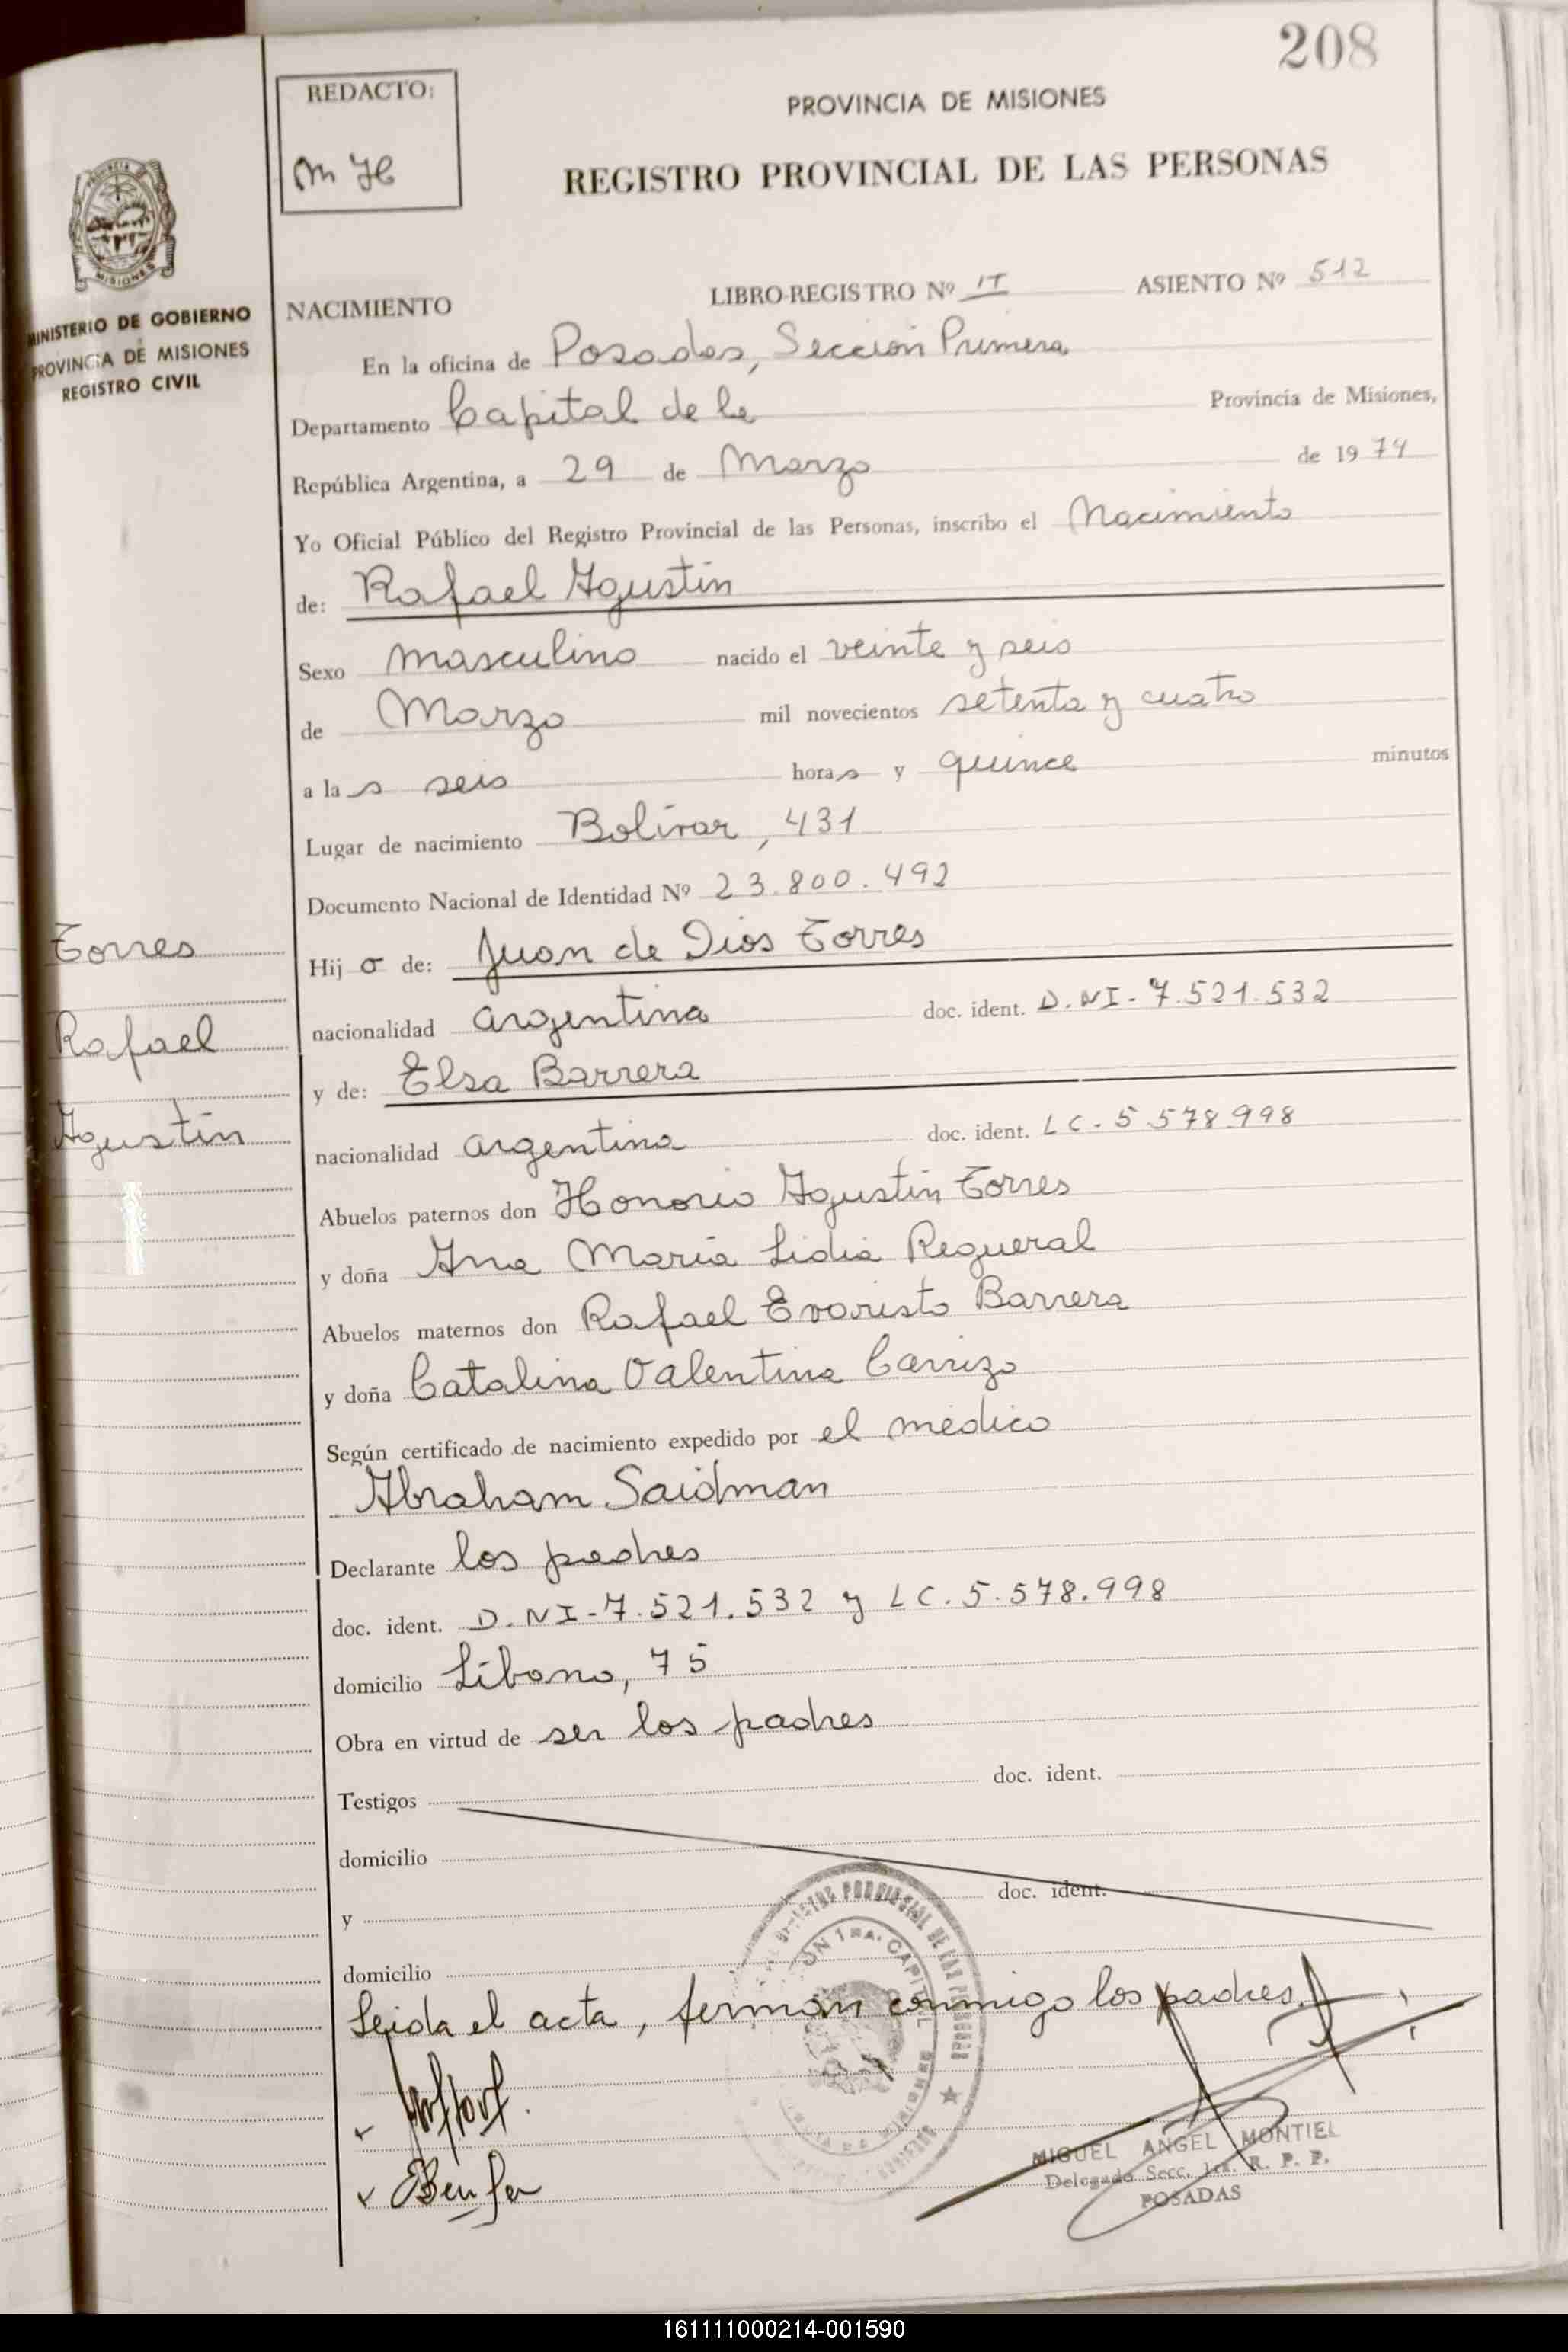 208
REDACTO:
M H
PROVINCIA DE MISIONES
REGISTRO PROVINCIAL DE LAS PERSONAS
MISIONES
MINISTERIO DE GOBIERNO
PROVINCIA DE MISIONES
REGISTRO CIVIL
NACIMIENTO LIBRO-REGISTRO Nº II ASIENTO Nº 512
En la oficina de Posadas, Sección Primera
Departamento Capital de la Provincia de Misiones,
República Argentina, a 29 de Marzo de 1974
Yo Oficial Público del Registro Provincial de las Personas, inscribo el Nacimiento
de: Rafael Agustín
Sexo masculino nacido el veinte y seis
de Marzo mil novecientos setenta y cuatro
a las seis horas y quince minutos
Lugar de nacimiento Bolívar, 431
Documento Nacional de Identidad Nº 23.800.492
Torres
Rafael
Agustín
Hijo de: Juan de Dios Torres
nacionalidad argentina doc. ident. D.NI-7.521.532
y de: Elsa Barrera
nacionalidad argentina doc. ident. LC-5.578.998
Abuelos paternos don Honorio Agustín Torres
y doña Ana María Lidia Regueral
Abuelos maternos don Rafael Evaristo Barrera
y doña Catalina Valentina Carrizo
Según certificado de nacimiento expedido por el médico
Abraham Saidman
Declarante los padres
doc. ident. D.NI-7.521.532 y LC.5.578.998
domicilio Líbano, 75
Obra en virtud de ser los padres
Testigos doc. ident.
domicilio
y doc. ident.
domicilio
Leída el acta, firman conmigo los padres.
MIGUEL ANGEL MONTIEL
Delegado Secc. 1ra. R. P. P.
POSADAS
161111000214-001590